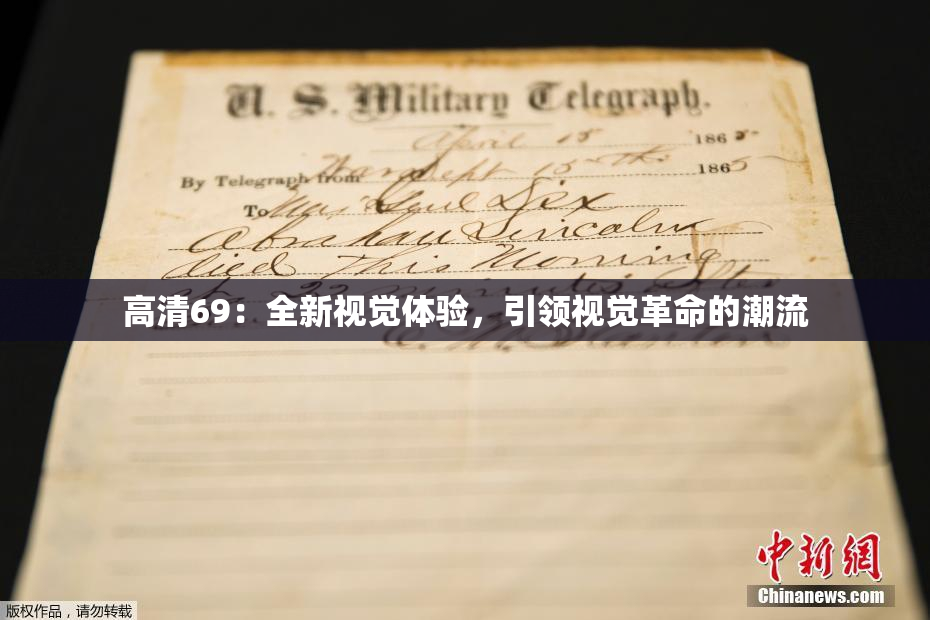 U. S. Military Telegraph.
April 15 1865
By Telegraph from War Dept 15th 1865
To Maj Genl Dix
Abraham Lincoln
died This Morning
at 22 minutes after
高清69：全新视觉体验，引领视觉革命的潮流
E. M. Stanton
中新網
Chinanews.com
版权作品，请勿转载